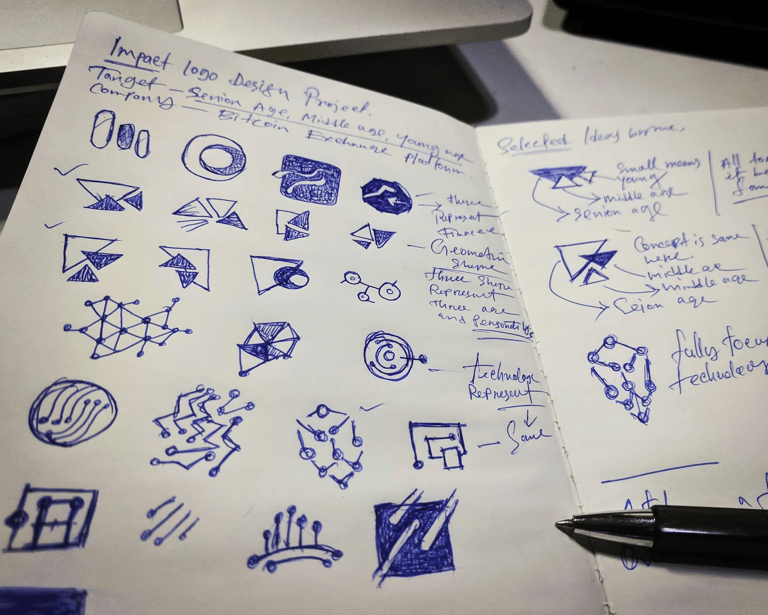 Impact logo Design Project.
Target — Senion Age, Middle age, Young age
Company — Bitcoin Exchange Platform
three
Represent
Finance
Geometric
Shrme
three Shrme
Represent
three age
and
technologe
Represent
Same
Selected Ideas
Small means
young
middle age
senion age
All
it be
Concept is same
here.
middle ae
middle age
Seion age
fully focu
technolo